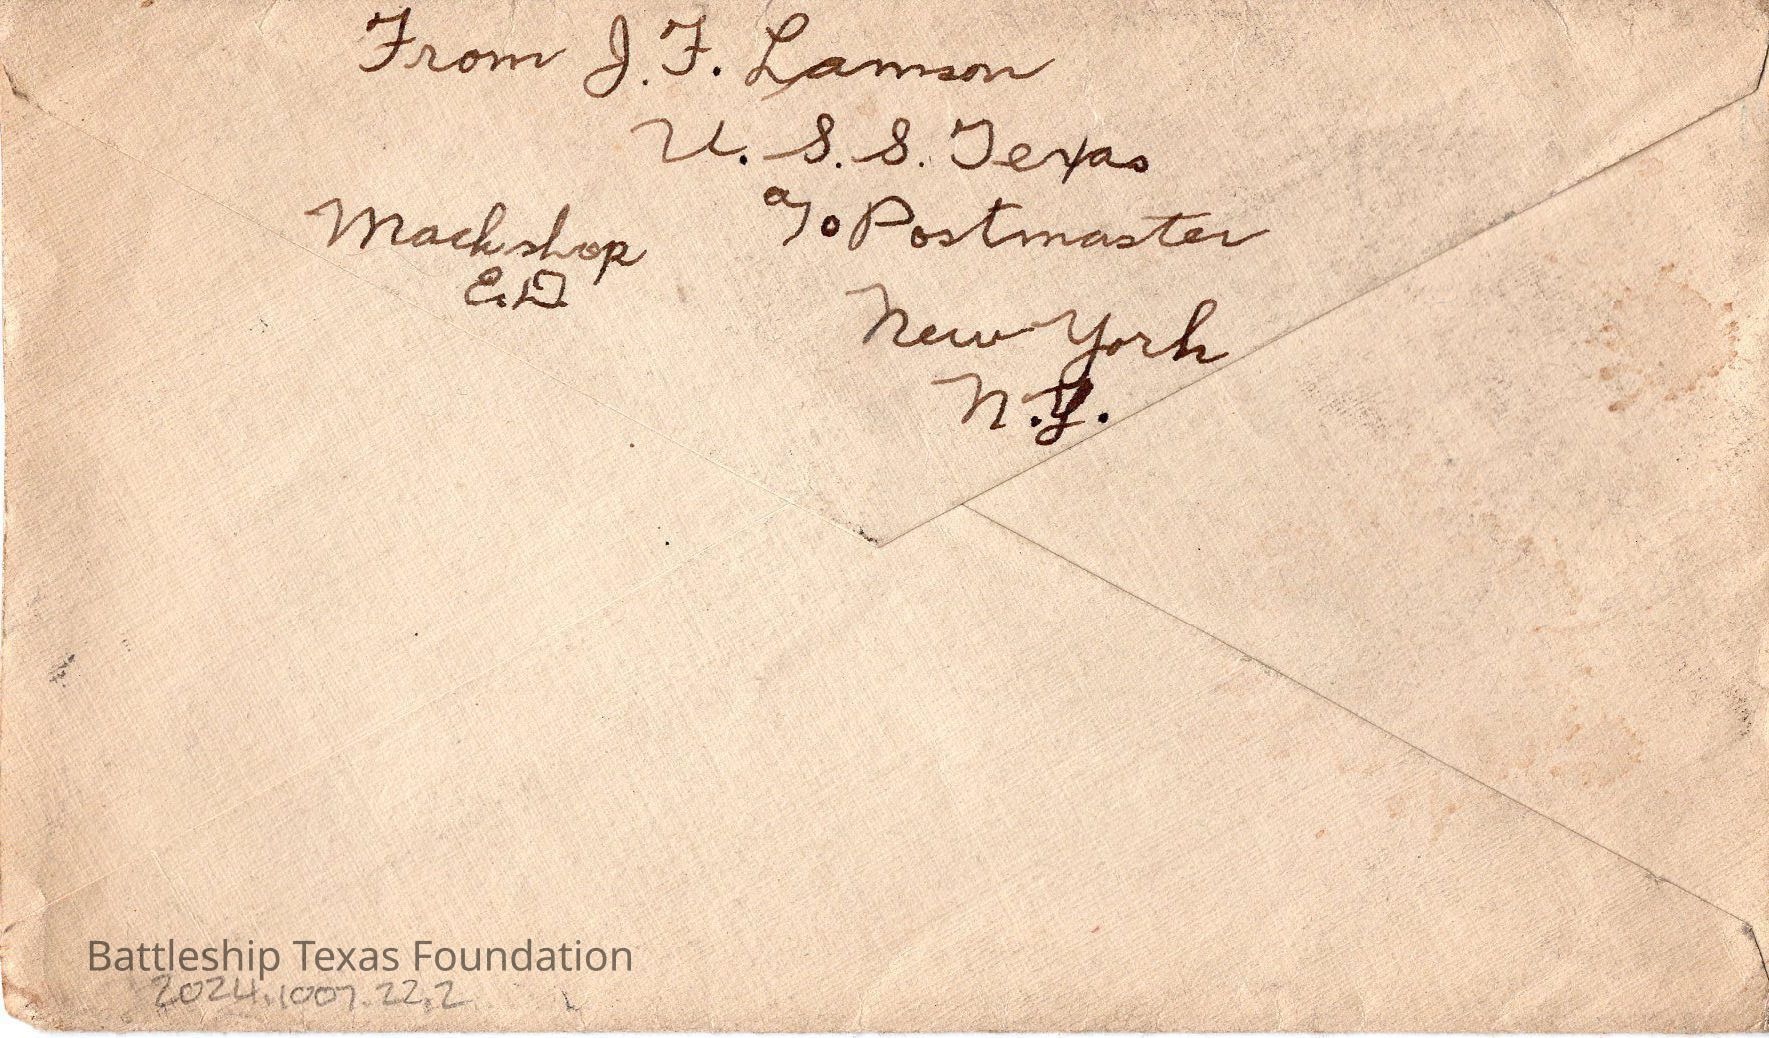 From J. F. Lamson
U. S. S. Texas
a/o Postmaster
Mackshop
E.D.
New York
N.Y.
Battleship Texas Foundation
2024.1007.22.2